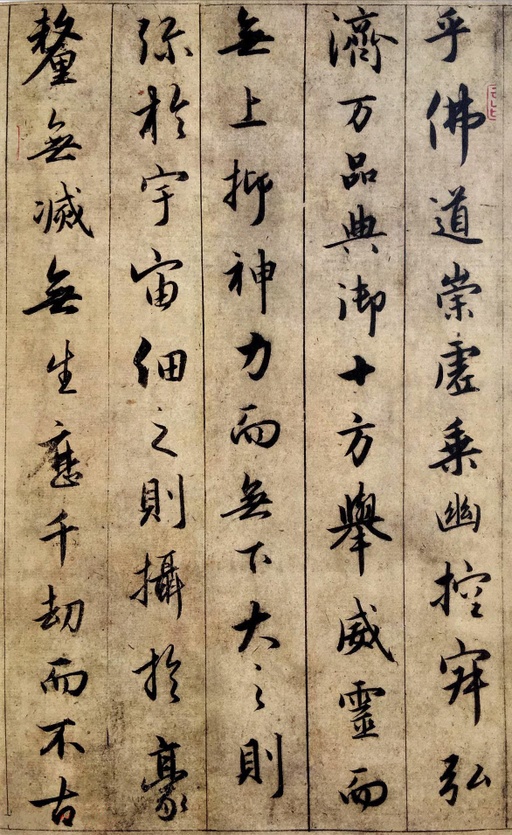 乎佛道崇虚乘幽控寂弘
濟万品典御十方舉威靈而
無上抑神力而無下大之則
弥於宇宙細之則攝於豪
釐無滅無生應千劫而不古